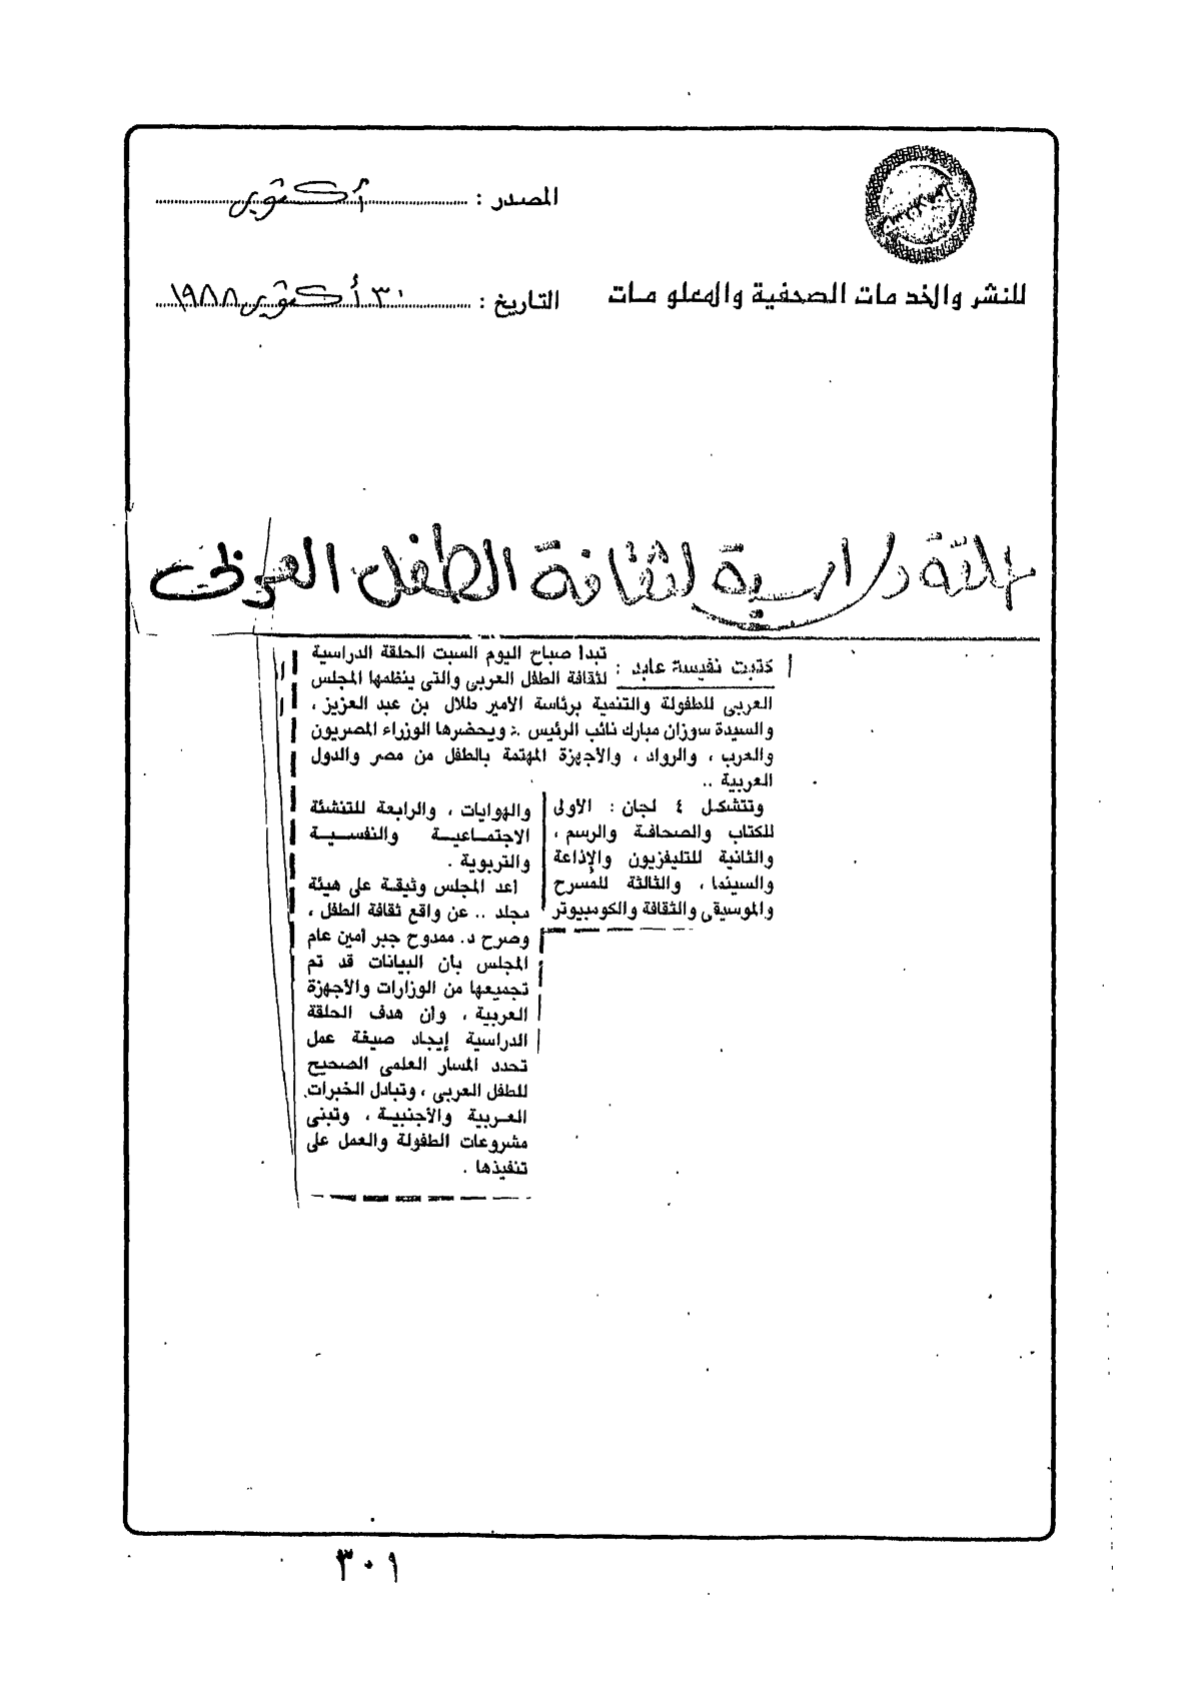 المصدر : أكتوبر
للنشر والخدمات الصحفية والمعلومات
التاريخ : ٣٠ أكتوبر ١٩٨٨
حلقة دراسية لثقافة الطفل العربى
كتبت نفيسة عابد :
تبدأ صباح اليوم السبت الحلقة الدراسية
لثقافة الطفل العربى والتى ينظمها المجلس
العربى للطفولة والتنمية برئاسة الأمير طلال بن عبد العزيز ،
والسيدة سوزان مبارك نائب الرئيس .. ويحضرها الوزراء المصريون
والعرب ، والرواد ، والأجهزة المهتمة بالطفل من مصر والدول
العربية ..
وتتشكل ٤ لجان : الأولى
للكتاب والصحافة والرسم ،
والثانية للتليفزيون والإذاعة
والسينما ، والثالثة للمسرح
والموسيقى والثقافة والكومبيوتر
والهوايات ، والرابعة للتنشئة
الاجتمـاعيـة والنفسـية
والتربوية .
أعد المجلس وثيقة على هيئة
مجلد .. عن واقع ثقافة الطفل ،
وصرح د. ممدوح جبر أمين عام
المجلس بأن البيانات قد تم
تجميعها من الوزارات والأجهزة
العربية ، وأن هدف الحلقة
الدراسية إيجاد صيغة عمل
تحدد المسار العلمى الصحيح
للطفل العربى ، وتبادل الخبرات
العربية والأجنبية ، وتبنى
مشروعات الطفولة والعمل على
تنفيذها .
٣٠١